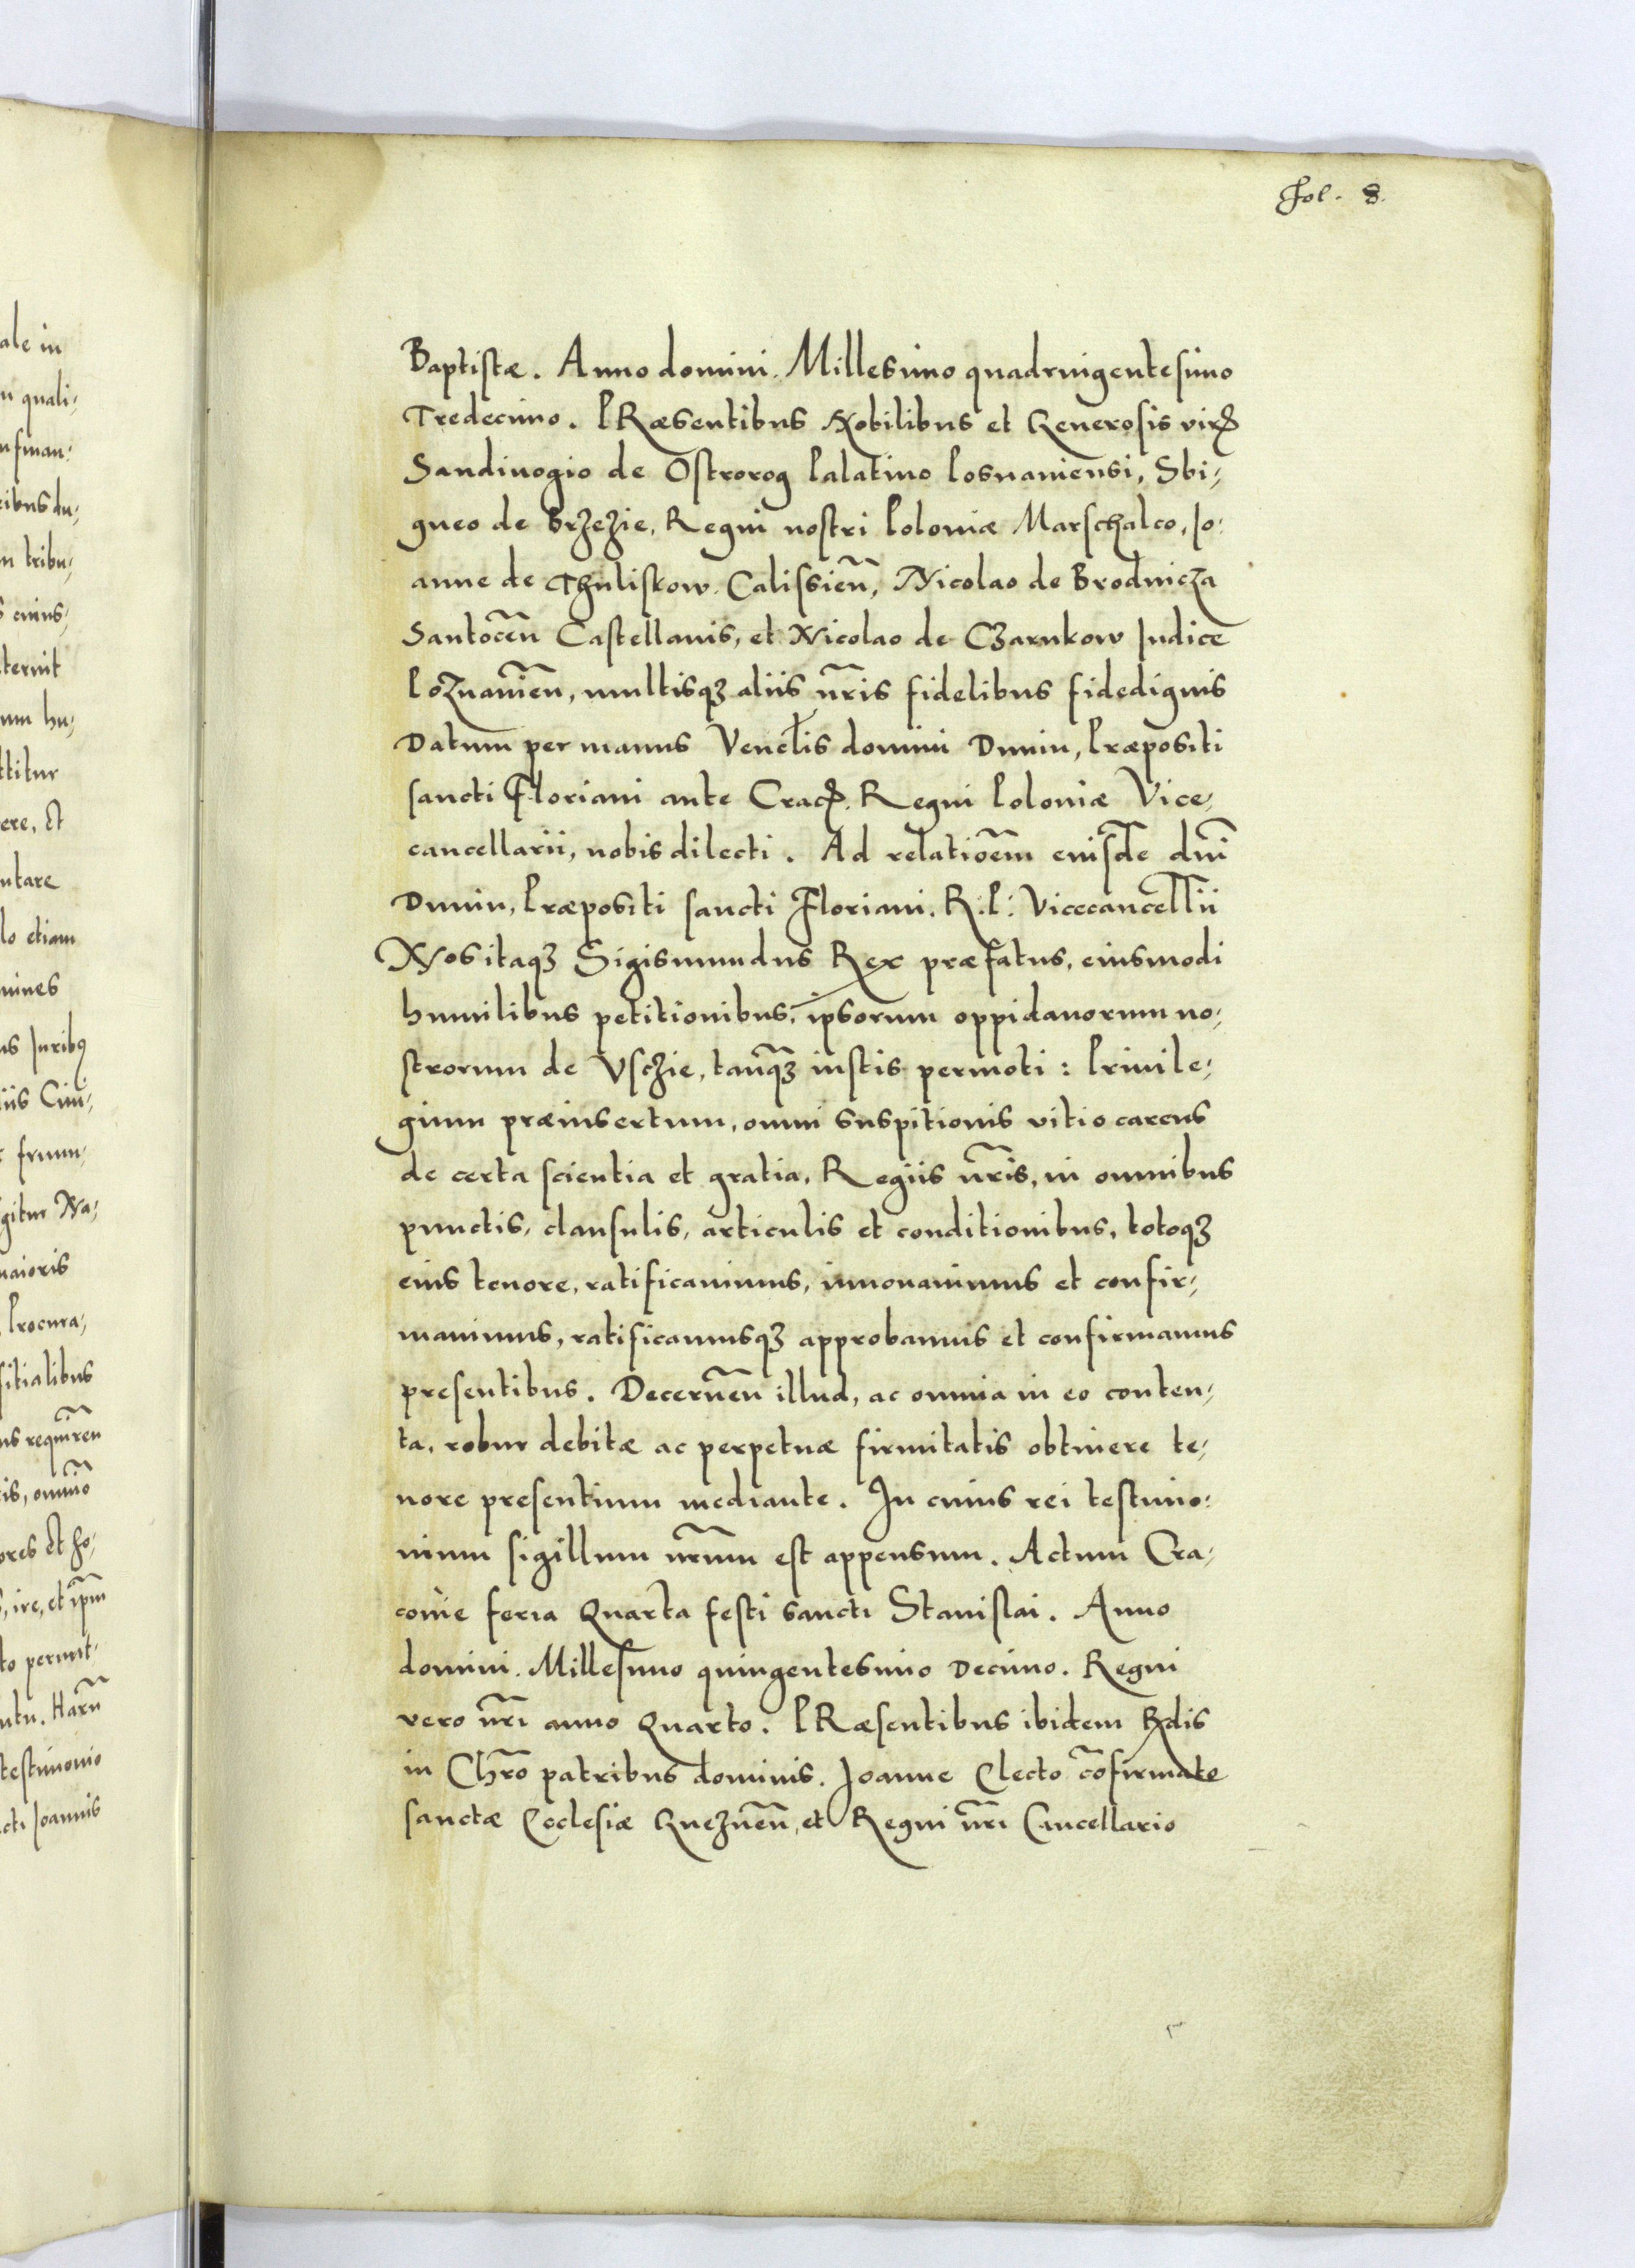 fol. 8.
Baptistæ. Anno domini. Millesimo quadringentesimo
Tredecimo. PRæsentibus Nobilibus et Generosis viris
Sandivogio de Ostrorog Palatino Posnaniensi, Sbi,
gneo de Brzezie, Regni nostri Poloniæ Marschalco, Jo,
anne de Thuliskow. Calissieñ, Nicolao de Brodnicza
Santoceñ Castellanis, et Nicolao de Czarnkow Judice
Poznanieñ, multisqꝫ aliis nr̃is fidelibus fidedignis
Datum per manus Venebłis domini Dunin, Præpositi
sancti Floriani ante Crac. Regni Poloniæ Vice,
cancellarii, nobis dilecti. Ad relatioẽm eiusdẽ dñi
Dunin, Præpositi sancti Floriani. R. P. Vicecancellii
Nos itaqꝫ Sigismundus Rex præfatus, eiusmodi
humilibus petitionibus, ipsorum oppidanorum no,
strorum de Vschie, tanq̃ꝫ iustis permoti: Privile,
gium præinsertum, omni suspitionis vitio carens
de certa scientia et gratia, Regiis nr̃is, in omnibus
punctis, clausulis, articulis et conditionibus, totoqꝫ
eius tenore, ratificauimus, innouauimus et confir,
mauimus, ratificamusqꝫ approbamus et confirmamus
presentibus. Decerneñ illud, ac omnia in eo conten,
ta, robur debitæ ac perpetuæ firmitatis obtinere te,
nore presentium mediante. In cuius rei testimo,
nium sigillum nr̃um est appensum. Actum Cra,
couie feria Quarta festi sancti Stanislai. Anno
domini. Millesimo quingentesimo Decimo. Regni
vero nr̃i anno Quarto. PRæsentibus ibidem Rñdis
in Chr̃o patribus dominis. Joanne Electo cõfirmato
sanctæ Ecclesiæ Gnezneñ, et Regni nr̃i Cancellario
ale in
n quali,
nfman,
ribus du,
m tribu,
s cuius,
ternit
um hu,
ttitur
ere, et
ntare
lo etiam
mines
us Juribꝯ
iis Ciui,
fruun,
gitur Na,
maioris
Procura,
sitialibus
us requireñ
is, omnio
ores et ho,
, ire, et ip̃m
to permit,
ntu. Haruñ
testimonio
cti Joannis